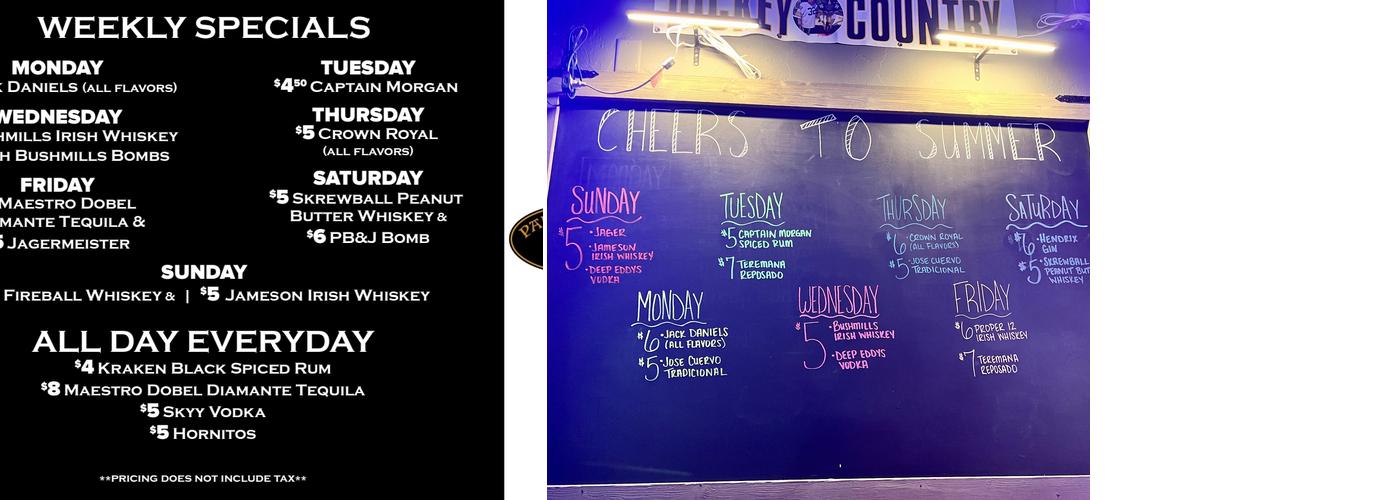 WEEKLY SPECIALS
MONDAY
DANIELS (ALL FLAVORS)
TUESDAY
$4⁵⁰ CAPTAIN MORGAN
WEDNESDAY
IRISH WHISKEY
BUSHMILLS BOMBS
THURSDAY
$5 CROWN ROYAL
(ALL FLAVORS)
FRIDAY
MAESTRO DOBEL
TEQUILA &
JAGERMEISTER
SATURDAY
$5 SKREWBALL PEANUT
BUTTER WHISKEY &
$6 PB&J BOMB
SUNDAY
FIREBALL WHISKEY & | $5 JAMESON IRISH WHISKEY
ALL DAY EVERYDAY
$4 KRAKEN BLACK SPICED RUM
$8 MAESTRO DOBEL DIAMANTE TEQUILA
$5 SKYY VODKA
$5 HORNITOS
**PRICING DOES NOT INCLUDE TAX**
COUNTRY
CHEERS TO SUMMER
SUNDAY
$5 • JAGER
• JAMESON
IRISH WHISKEY
• DEEP EDDYS
VODKA
TUESDAY
$5 CAPTAIN MORGAN
SPICED RUM
$7 TEREMANA
REPOSADO
THURSDAY
$6 • CROWN ROYAL
(ALL FLAVORS)
$5 • JOSE CUERVO
TRADICIONAL
SATURDAY
$6 • HENDRIX
GIN
$5 • SKREWBALL
PEANUT BUT
WHISKEY
MONDAY
$6 • JACK DANIELS
(ALL FLAVORS)
$5 • JOSE CUERVO
TRADICIONAL
WEDNESDAY
$5 • BUSHMILLS
IRISH WHISKEY
• DEEP EDDYS
VODKA
FRIDAY
$6 PROPER 12
IRISH WHISKEY
$7 TEREMANA
REPOSADO